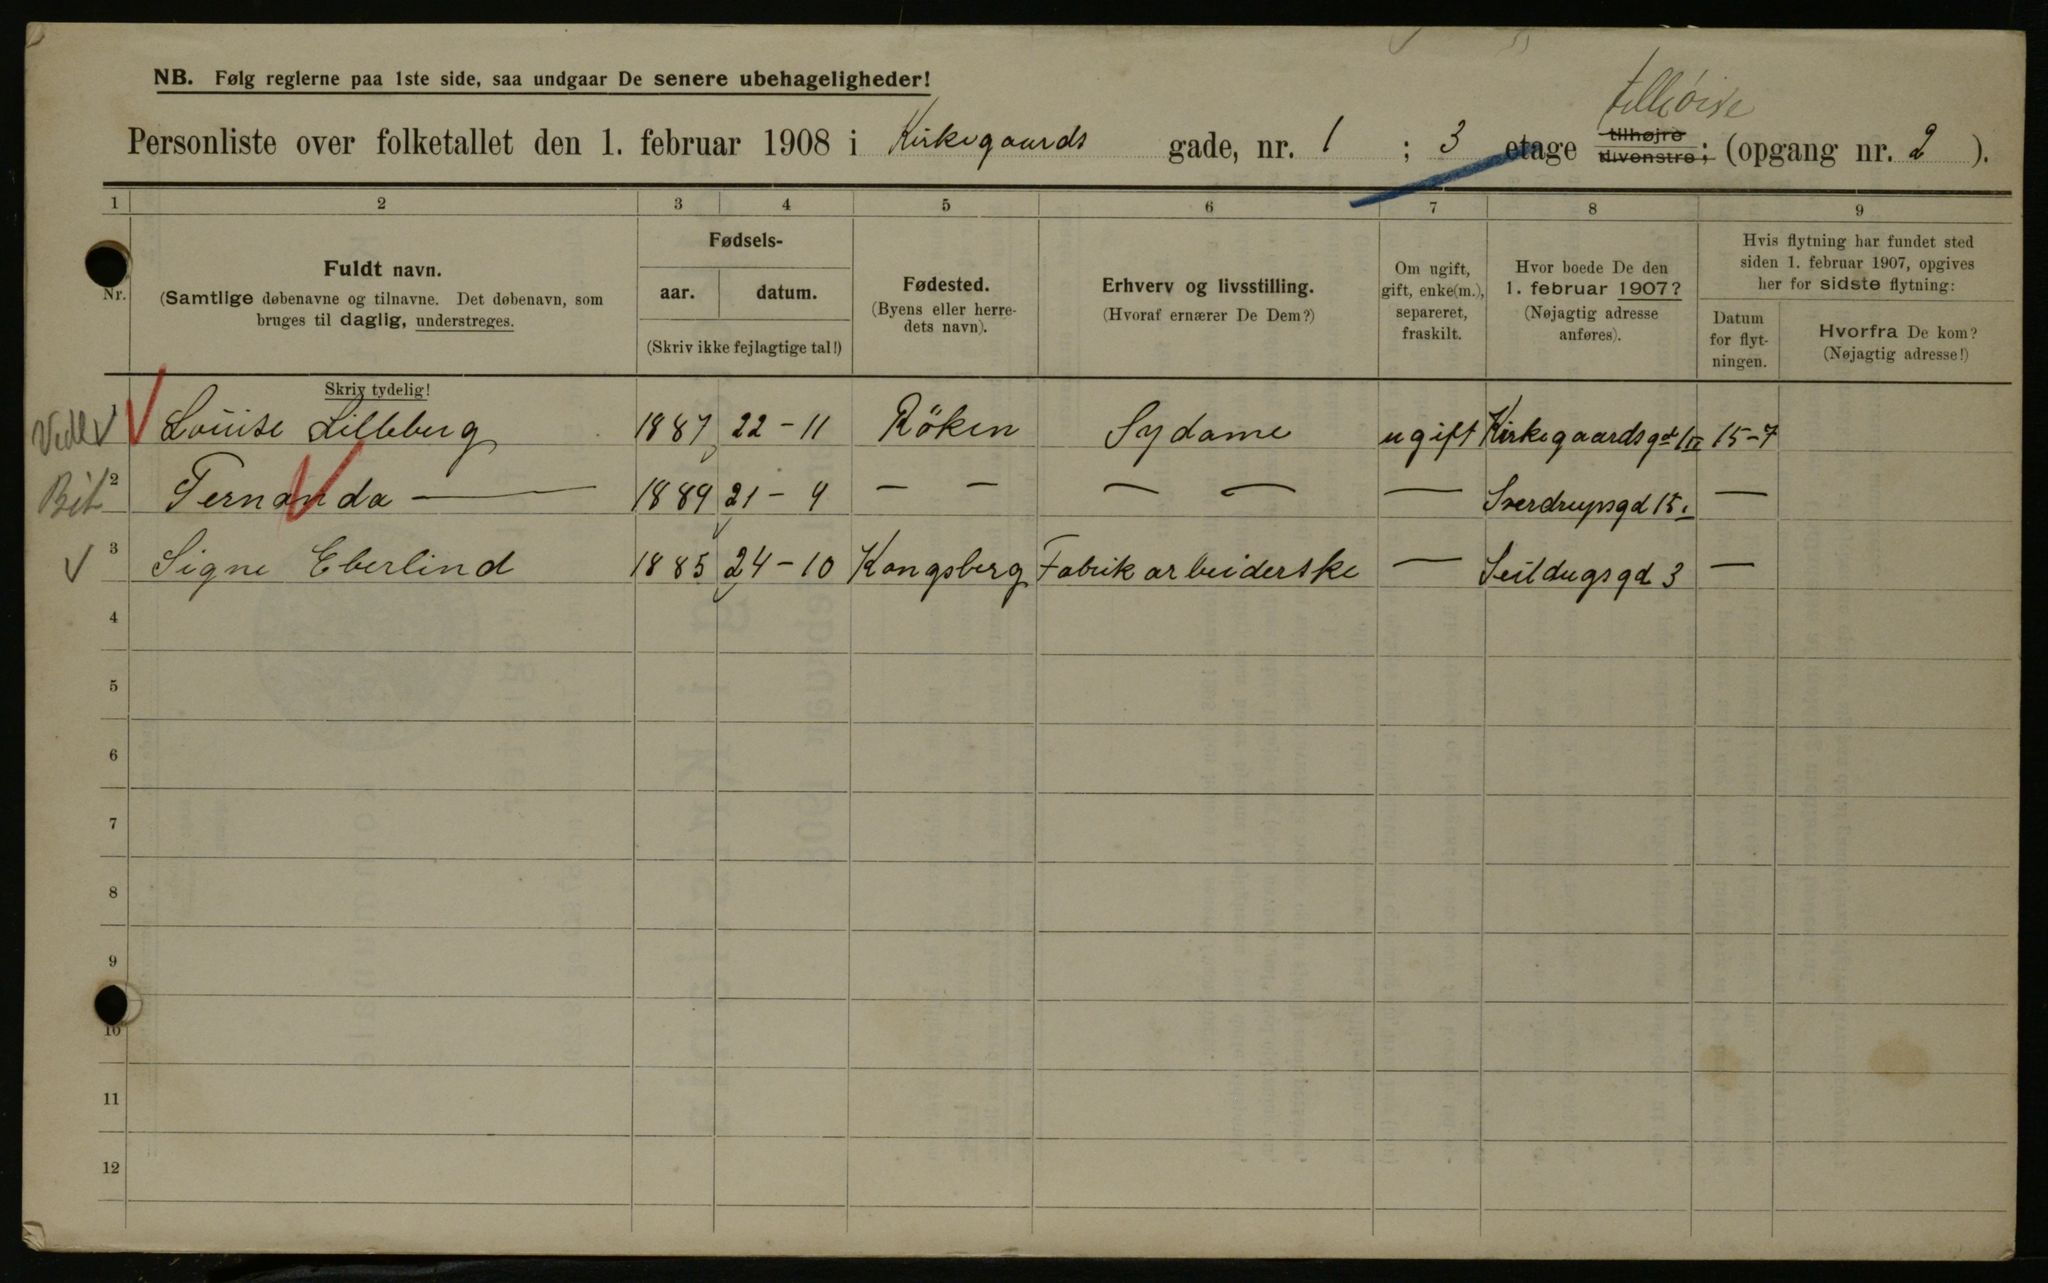 NB. Følg reglerne paa 1ste side, saa undgaar De senere ubehageligheder!
Personliste over folketallet den 1. februar 1908 i Kirkegaards gade, nr. 1 ; 3 etage tilhøjre tilvenstre; (opgang nr. 2 ).
1 2 3 4 5 6 7 8 9
Nr. Fuldt navn. (Samtlige døbenavne og tilnavne. Det døbenavn, som bruges til daglig, understreges.
Skriv tydelig!
Fødsels-
aar. datum.
(Skriv ikke fejlagtige tal!)
Fødested. (Byens eller herredets navn).
Erhverv og livsstilling. (Hvoraf ernærer De Dem?)
Om ugift, gift, enke(m.), separeret, fraskilt.
Hvor boede De den 1. februar 1907? (Nøjagtig adresse anføres).
Hvis flytning har fundet sted siden 1. februar 1907, opgives her for sidste flytning:
Datum for flytningen.
Hvorfra De kom? (Nøjagtig adresse!)
1 Louise Lilleberg 1887 22-11 Röken Sydame ugift Kirkegaardsgd 1 II 15-7
2 Fernanda — 1889 21-9 — — — — — Sverdrupsgd 15 I —
3 Signe Eberlind 1885 24-10 Kongsberg Fabrikarbeiderske — Seildugsgd 3 —
4
5
6
7
8
9
10
11
12